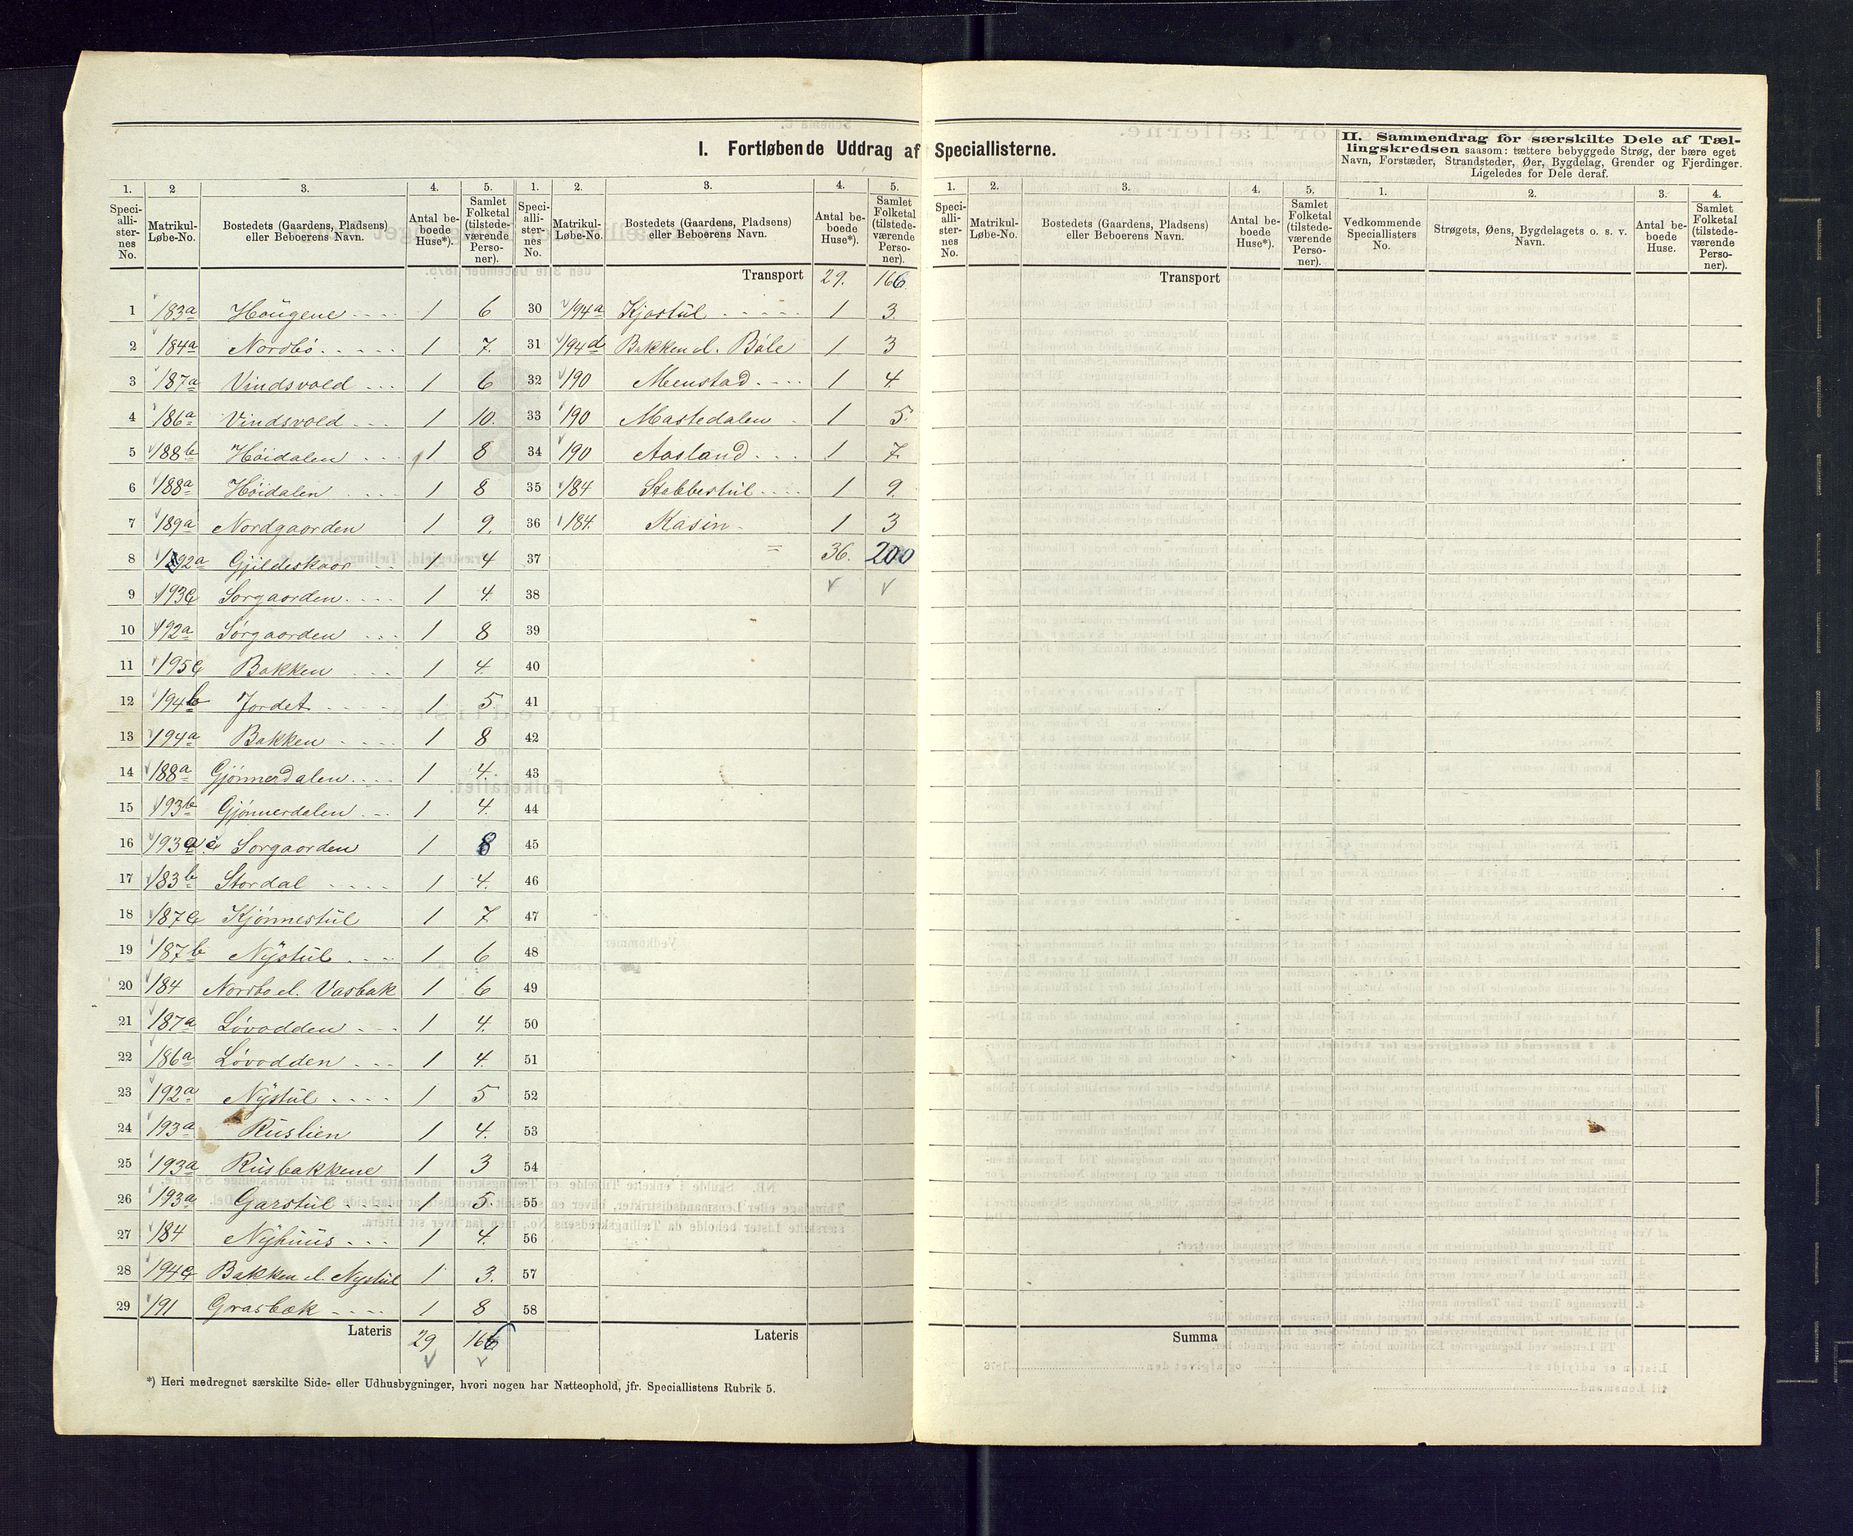 I. Fortløbende Uddrag af Speciallisterne.
1. Speciallisternes No.
2 Matrikul-Løbe-No.
3. Bostedets (Gaardens, Pladsens) eller Beboerens Navn.
4. Antal beboede Huse*).
5. Samlet Folketal (tilstedeværende Personer).
1 183a Haugene 1 6
2 184a Nordbø 1 7.
3 187a Vindsvold 1 6
4 186a Vindsvold 1 10.
5 188b Høidalen 1 8
6 188a Høidalen 1 8
7 189a Nordgaarden 1 9.
8 192a Gjildeskaar 1 4
9 193c Sørgaarden 1 4.
10 192a Sørgaarden 1 8
11 195c Bakken 1 4.
12 194b Jordet 1 5
13 194a Bakken 1 8
14 188a Gjønnerdalen 1 4.
15 193b Gjønnerdalen 1 4.
16 193a Sørgaarden 1 8
17 183b Stordal 1 4.
18 187c Kjønnestül 1 7
19 187b Nÿstül 1 6
20 184 Nordbo el. Vasbak 1 6
21 187a Løvodden 1 4.
22 186a Løvodden 1 4.
23 192a Nÿstül 1 5
24 193a Rüslien 1 4.
25 193a Rüsbakkene 1 3
26 193a Garstül 1 5.
27 184 Nÿhüüs 1 4.
28 194c Bakken el. Nystül 1 3.
29 191 Grasbæk 1 8
Lateris 29 166
*) Heri medregnet særskilte Side- eller Udhusbygninger, hvori nogen har Natteophold, jfr. Speciallistens Rubrik 5.
1. Speciallisternes No.
2. Matrikul-Løbe-No.
3. Bostedets (Gaardens, Pladsens) eller Beboerens Navn.
4. Antal beboede Huse*).
5. Samlet Folketal (tilstedeværende Personer).
Transport 29. 166
30 194a Kjøstül 1 3
31 194d Bakken el. Bøle 1 3
32 190 Menstad 1 4
33 190 Mastedalen 1 5.
34 190 Aasland 1 7.
35 184 Stabbestül 1 9.
36 184. Kasin 1 3
37 = 36. 200
38
39
40
41
42
43
44
45
46
47
48
49
50
51
52
53
54
55
56
57
58
Lateris
1. Speciallisternes No.
2. Matrikul-Løbe-No.
3. Bostedets (Gaardens, Pladsens) eller Beboerens Navn.
4. Antal beboede Huse*).
5. Samlet Folketal (tilstedeværende Personer).
Transport
Summa
II. Sammendrag for særskilte Dele af Tællingskredsen saasom: tættere bebyggede Strøg, der bære eget
Navn, Forstæder, Strandsteder, Øer, Bygdelag, Grender og Fjerdinger.
Ligeledes for Dele deraf.
1. Vedkommende Speciallisters No.
2. Strøgets, Øens, Bygdelagets o. s. v. Navn.
3. Antal beboede Huse.
4. Samlet Folketal (tilstedeværende Personer).